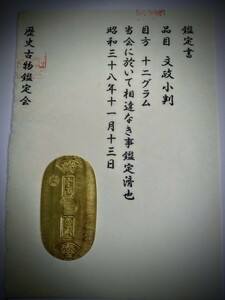 鑑定書
品目 文政小判
目方 十二グラム
当会に於いて相違なき事鑑定済也
昭和三十八年十一月十三日
歴史古物鑑定会